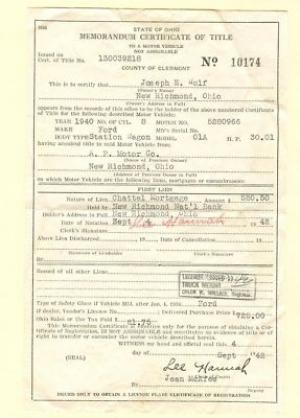 STATE OF OHIO
MEMORANDUM CERTIFICATE OF TITLE
TO A MOTOR VEHICLE
NOT ASSIGNABLE
Issued on
Cert. of Title No. 130039218 No 10174
COUNTY OF CLERMONT
This is to certify that Joseph E. Wolf
New Richmond, Ohio
(Owner's Address in Full)
appears from the records of this office to be the holder of the above numbered Certificate
of Title for the following described Motor Vehicle:
YEAR 1940 NO. OF CYL. 8 MOTOR NO. 5280966
MAKE Ford Mf'r's Serial No.
BODY TYPE Station Wagon MODEL 01A H. P. 30.01
having acquired title to said Motor Vehicle from
A. F. Motor Co.
New Richmond, Ohio
on which Motor Vehicle are the following liens, mortgages or encumbrances:
FIRST LIEN
Nature of Lien Chattel Mortgage Amount $
Held by New Richmond Nat'l Bank
Holder's Address in Full New Richmond, Ohio
Dated Sept 1942
Clerk's Signature Hannah
Above Lien Discharged Date of Cancellation
Signature of Lienholder
Record all other Liens
Type of Safety Glass if Vehicle Mfd. after Jan. 1, 1936 Ford
If dealer, Vendor's License No. Delivered Purchase Price $725.00
Ohio Sales or Use Tax Paid $ 21.75
This Memorandum Certificate is effective only for the purpose of obtaining a Certificate of Registration, IS NOT ASSIGNABLE and
WITNESS my hand and official seal this 4
day of Sept 1942
(SEAL) Lee Hannah
Clerk of Courts
Jean McAfee
ISSUED ONLY TO OBTAIN A LICENSE PLATE CERTIFICATE OF REGISTRATION